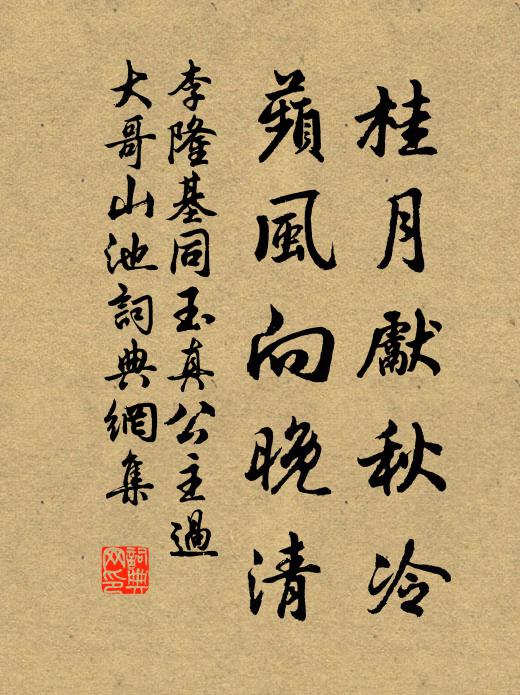 桂月獻秋冷
蘋風向晚清
李隆基同玉真公主過
大哥山池詞典網集
詞典网印